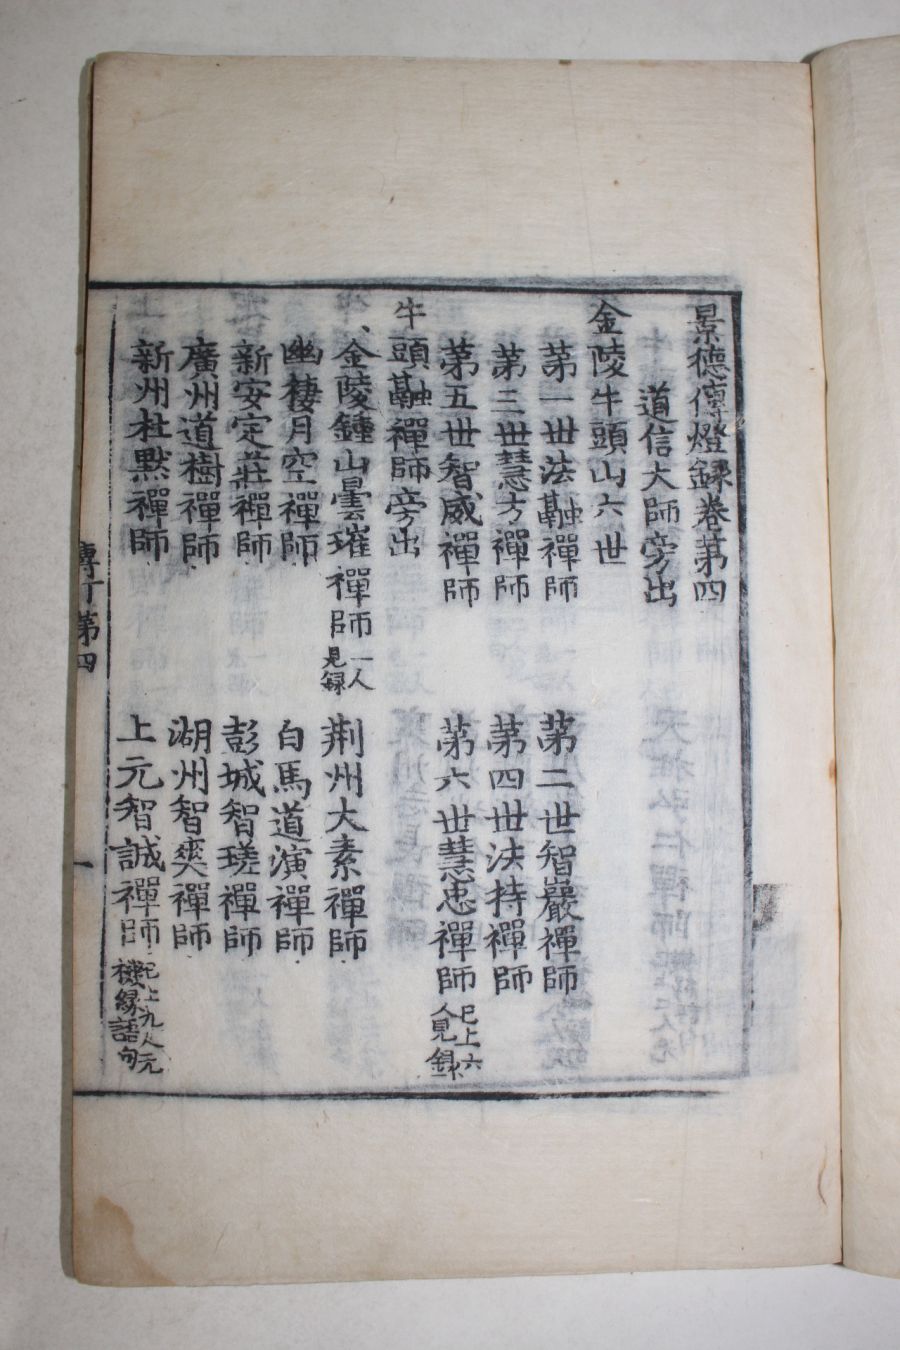 景德傳燈錄卷第四
道信大師旁出
金陵牛頭山六世
第一世法融禪師 第二世智巖禪師
第三世慧方禪師 第四世法持禪師
第五世智威禪師 第六世慧忠禪師 已上六人見錄
牛頭融禪師旁出
、金陵鍾山曇璀禪師 一人見録 荆州大素禪師
幽棲月空禪師 白馬道演禪師
新安定莊禪師 彭城智瑳禪師
廣州道樹禪師 湖州智爽禪師
新州杜默禪師 上元智誠禪師 已上九人元機緣語句
第四 一